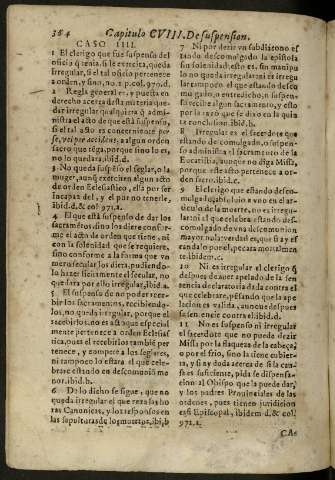 364 Capitulo CVIII. De suspension.
CASO IIII.
1 El clerigo que fue suspenso del
oficio q̃ tenia, si le exercita, queda
irregular, si el tal oficio pertenece
a orden, y sino, no. 1. p. col. 970. d.
2 Regla general es, y puesta en
derecho acerca desta materia que
dar irregular qualquiera q̃ admi
nistra el acto de que està suspenso,
si el tal acto es concerniente per
se, vel per accidens, a algun orden
sacro que tẽga, porque sino lo es,
no lo quedara, ibid. d.
3 No queda suspenso el seglar, o la
muger, aunq̃ exerciten algun acto
de orden Eclesiastico, ella por ser
incapaz del, y el por no tenerle,
ibid. d. & col. 971. a.
4 El que està suspenso de dar los
sacramẽtos, sino los diere confor-
me el acto de orden que tiene, ni
con la solenidad que se requiere,
sino conforme a la forma que vn
mero secular los diera, pudiendo-
lo hazer licitamente el secular, no
quedara por ello irregular, ibid. a.
5 El suspenso de no poder rece-
bir los sacramentos, recibiendo-
los, no queda irregular, porque el
recebirlos, no es acto que especial
mente pertenece a orden Eclesias
tica, pues el recebirlos tambiẽ per
tenece, y compete a los seglares,
ni tampoco lo estara el que cele-
brare estando en descomuniõ me
nor. ibid. b.
6 De lo dicho se sigue, que no
queda irregular el que reza las ho
ras Canonicas, y los responsos en
las sepulturas de los muertos, ibi, b
7 Ni por dezir vn subdiacono es
tando descomulgado la epistola
sin solenidad, esto es, sin manipu
lo no queda irregular: ni es irregu
lar tampoco el que estando desco
mulgado, o entredicho, o suspen
so recibe algun sacramento, y esto
por la razõ que se dixo en la quin
ta conclusion. ibid. b.
8 Irregular es el sacerdote que
estando descomulgado, o suspen-
so administra el sacramento de la
Eucaristia, aunque no diga Missa,
porque este acto pertenece a or-
den sacro. ibid. b.
9 El clerigo que estando desco-
mulgado absuelue a vno en el ar-
ticulo de la muerte, no es irregu-
lar: ni al que celebra estando des-
comulgado de vna descomunion
mayor nula verdad es, que si ay es
candalo por el, pecara mortalmen
te. ibidem. c.
10 Ni es irregular el clerigo q̃
despues de auer apelado de la sen
tencia declaratoria dada contra el
que celebrare, pesando que la ape
lacion es valida, aunque despues
la sentencie contra el, ibid. d.
11 No es suspenso ni irregular
el sacerdote que no puede dezir
Missa por la flaqueza de la cabeça,
o por el frio, sino la tiene cubier-
ta, y si ay duda acerca de si la cau-
sa es suficiente, pida dispensa-
cion al Obispo que la puede dar,
y los padres Prouinciales de las
ordenes, pues tienen jurisdicion
casi Episcopal, ibidem. d. & col.
972. a.
CA-